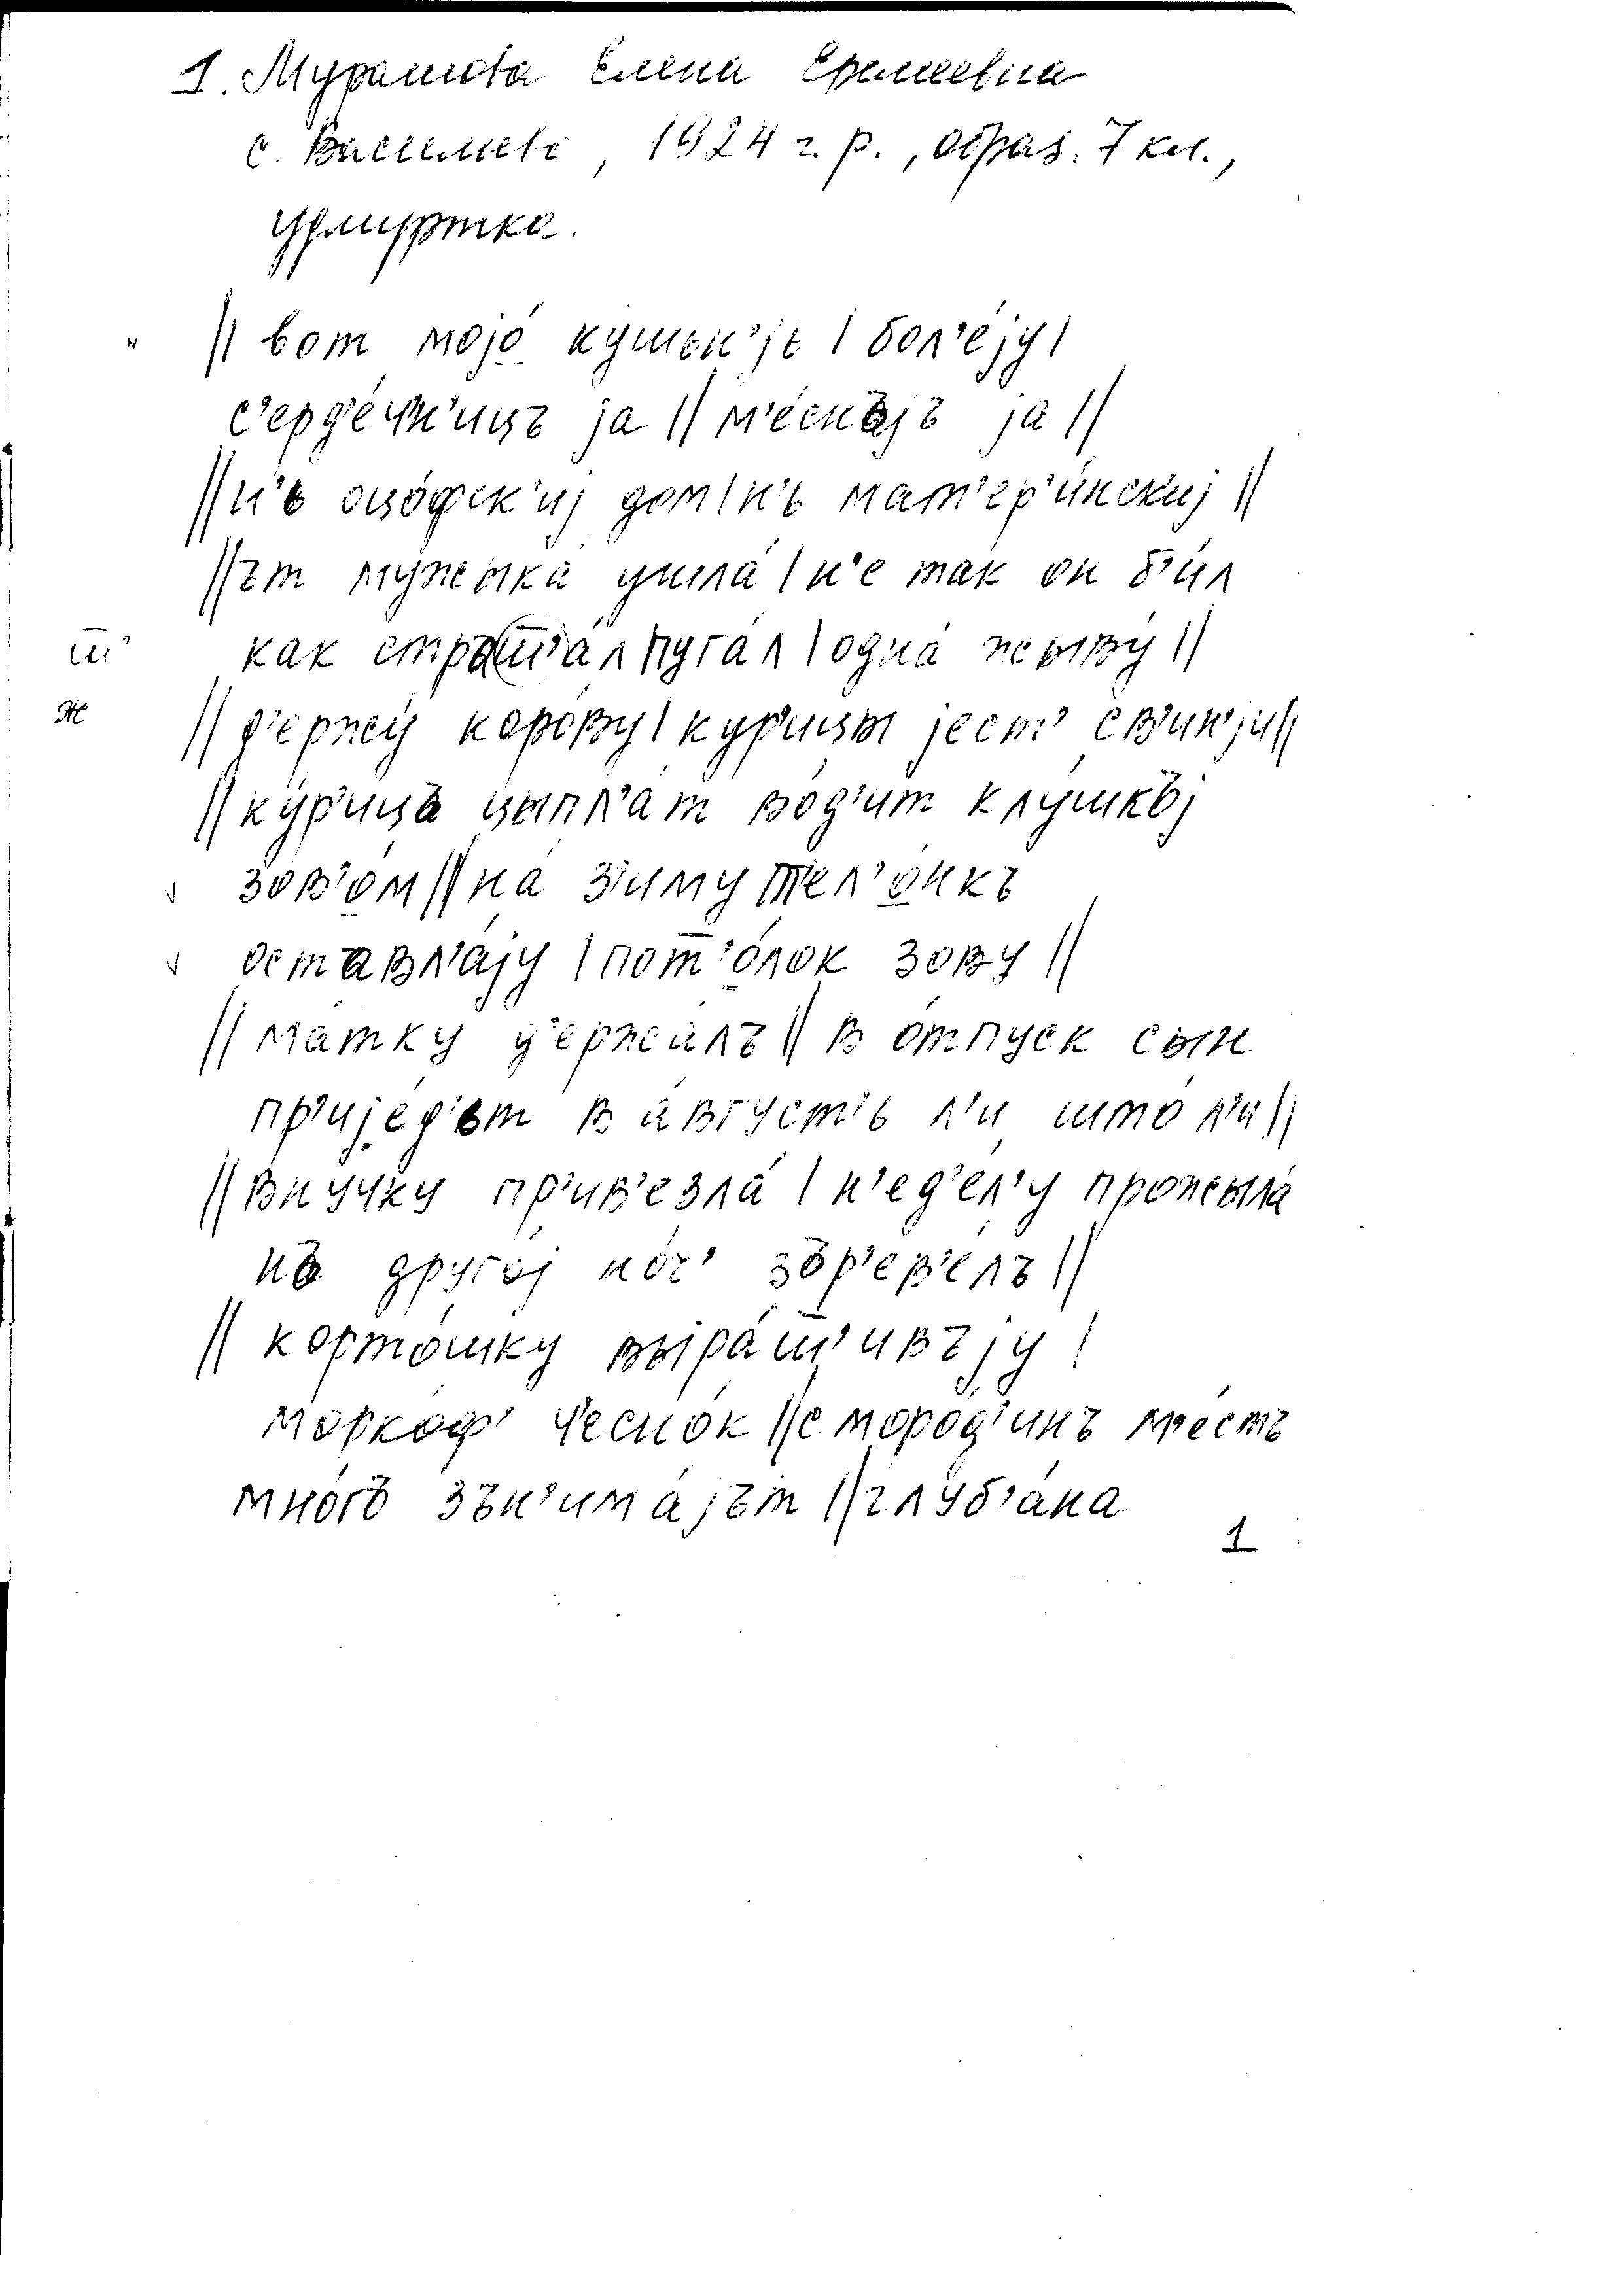 1. Мурашова Елена Еремеевна
с. Васильево, 1924 г. р., образ. 7 кл.,
удмуртка.
|| вот мојо́ ку́шьн'јь | бол'е́ју |
с'ерд'е́ч'н'ицъ ја || м'е́снъјъ ја ||
|| н'ь оцо́фск'иј дом | н'ь мат'ер'и́нскиј ||
|| ът мужыка́ ушла́ | н'е так он б'и́л
ш̅' как стра ш̅'а́л пуга́л | одна́ жыву́ ||
ж || д'ержу́ коро́ву | ку́р'ицы јест' св'ин'ји ||
|| ку́р'ицъ цыпл'а́т во́д'ит клу́шкъј
зов'о́м || на́ з'иму т'ел'о́нкъ
оставл'а́ју | пот̅'о́лок зову́ ||
|| ма́тку д'ержа́лъ || в о́тпуск сын
пр'ије́д'ьт в а́вгуст'ь л'и што́ л'и ||
|| вну́чку пр'ив'езла́ | н'ед'е́л'у прожыла́
нъ друго́ј но́ч' зър'ев'е́лъ ||
|| корто́шку выра́ш̅'ивъју |
морко́ф' ч'есно́к || сморо́д'инъ м'е́стъ
мно́гъ зън'има́јът || глуб'а́на
1